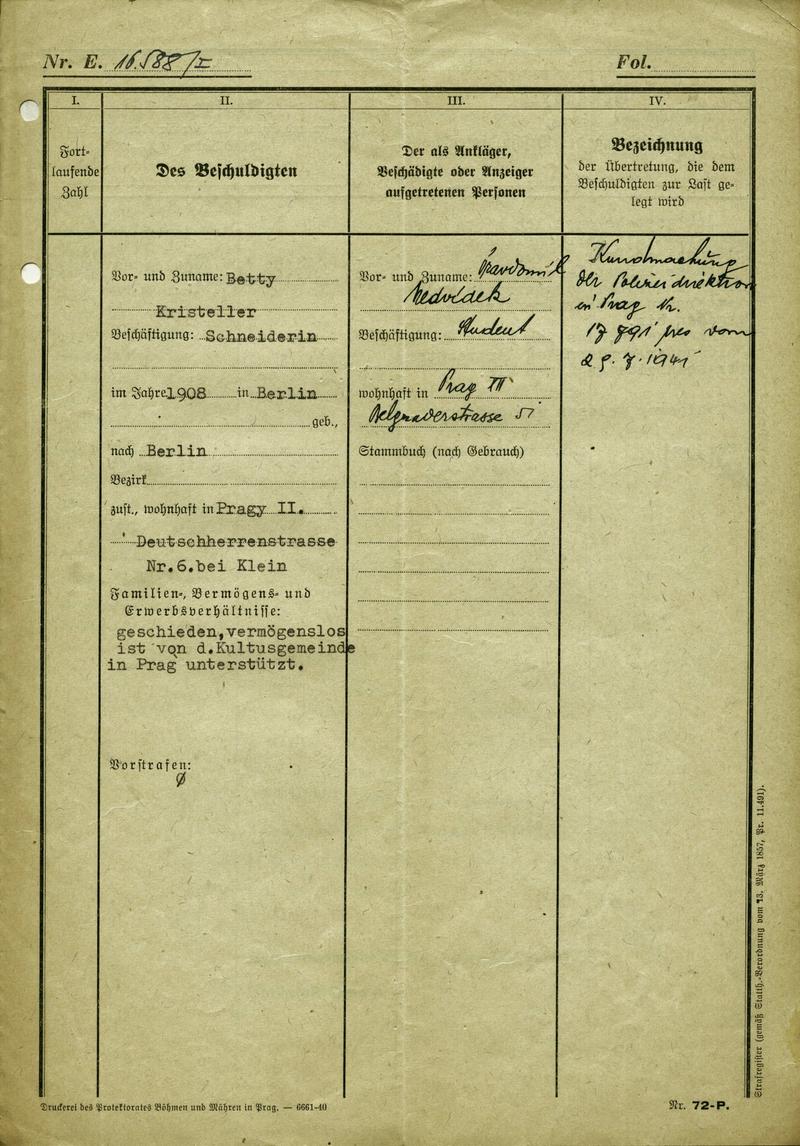 Nr. E. 16.588/I
Fol.
I.
II.
III.
IV.
Fort-
laufende
Zahl
Des Beschuldigten
Der als Ankläger,
Beschädigte oder Anzeiger
aufgetretenen Personen
Bezeichnung
der Übertretung, die dem
Beschuldigten zur Last ge-
legt wird
Vor- und Zuname: Betty
Kristeller
Beschäftigung: Schneiderin
im Jahre 1908 in Berlin
geb.,
nach Berlin
Bezirk
zust., wohnhaft in Pragy II.
Deutschherrenstrasse
Nr.6.bei Klein
Familien-, Vermögens- und
Erwerbsverhältnisse:
geschieden,vermögenslos
ist von d.Kultusgemeinde
in Prag unterstützt.
Vorstrafen:
Ø
Vor- und Zuname:
Beschäftigung: Student
wohnhaft in Prag
Belgraderstrasse 57
Stammbuch (nach Gebrauch)
Kundmachung
der Polizeidirektion
in Prag
Strafregister (gemäß Statth.-Verordnung vom 13. März 1857, Pr. 11.491).
Druckerei des Protektorates Böhmen und Mähren in Prag. — 6661-40
Nr. 72-P.